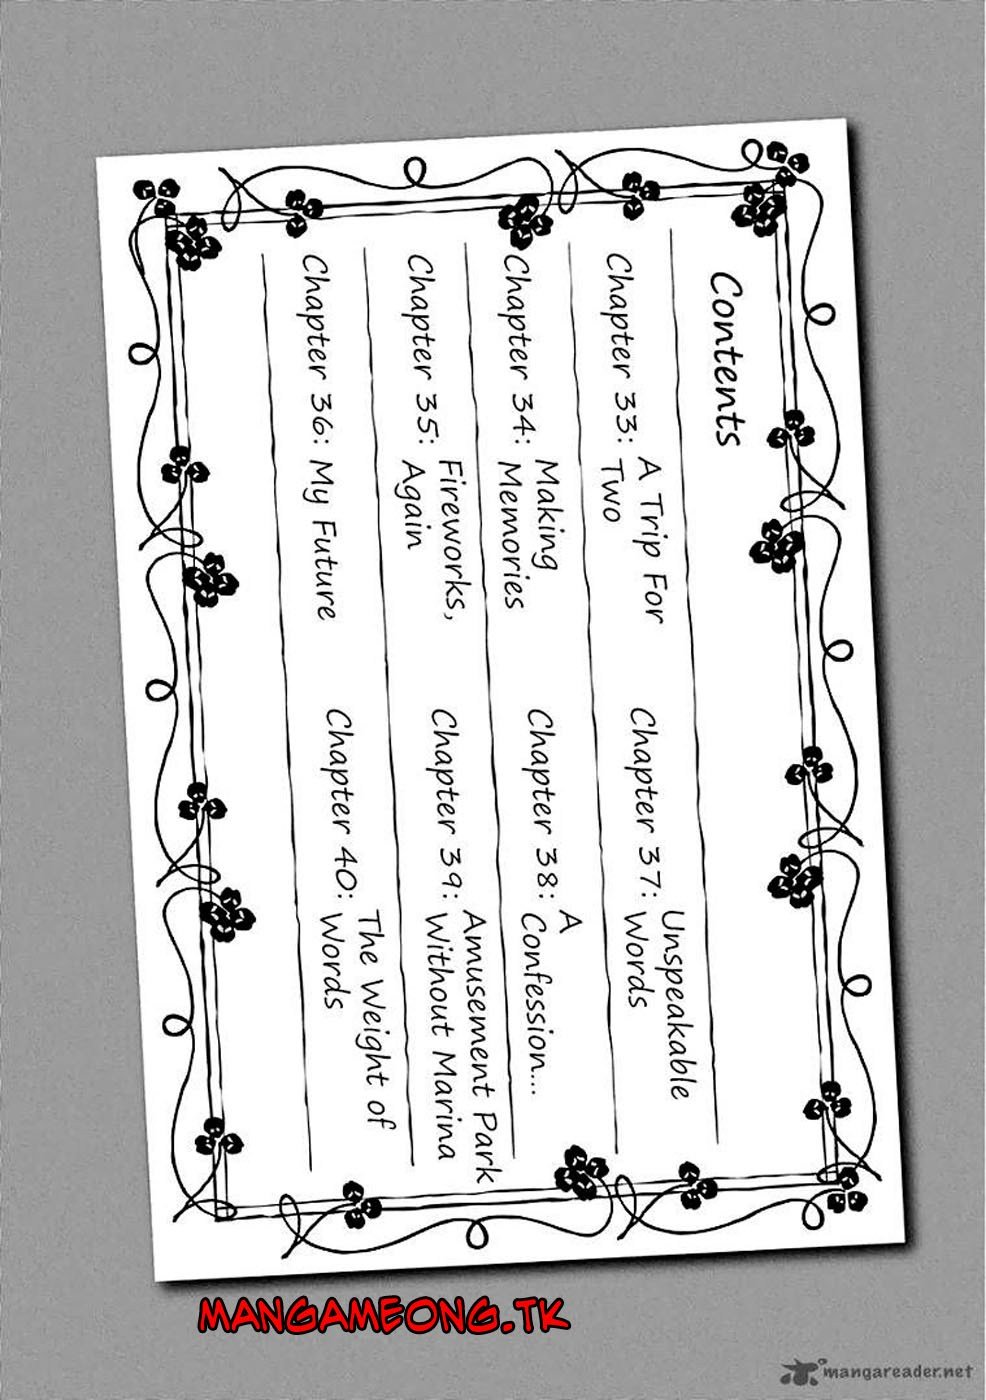 Contents
Chapter 33: A Trip For
Two
Chapter 34: Making
Memories
Chapter 35: Fireworks,
Again
Chapter 36: My Future
Chapter 37: Unspeakable
Words
Chapter 38: A
Confession...
Chapter 39: Amusement Park
Without Marina
Chapter 40: The Weight of
Words
MANGAMEONG.TK
mangareader.net